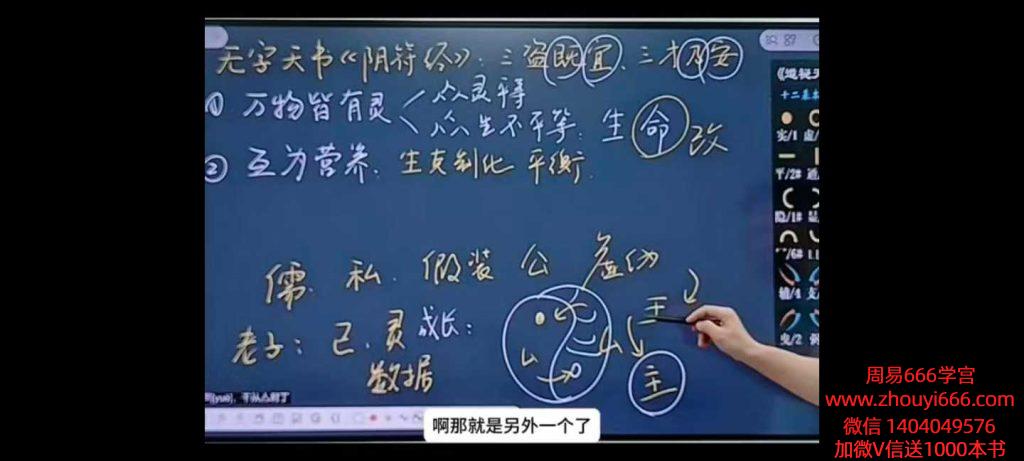 无字天书《阴符经》：三盗既宜、三才既安
87
① 万物皆有灵
众灵平等
众生不平等．生命改
② 互为营养．生克制化 平衡．
十二基本
实/1
平/2#
隐/1#
/6#
辅/4
支/
曳/2
儒．私．假装 公 虚伪
老子：己．灵 成长：
数据
王
主
啊那就是另外一个了
周易666学宫
www.zhouyi666.com
微信 1404049576
加微V信送1000本书